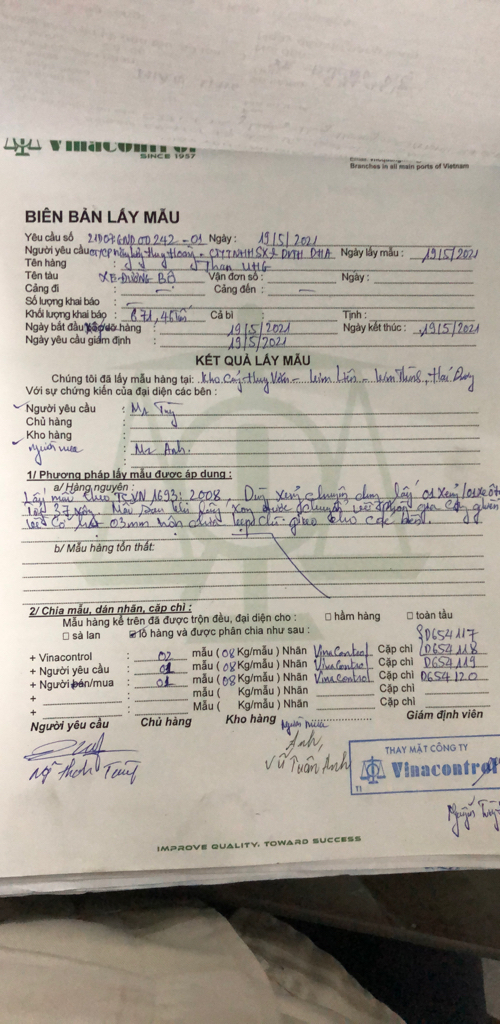 Vinacontrol
SINCE 1957
Branches in all main ports of Vietnam
BIÊN BẢN LẤY MẪU
Yêu cầu số 21D07GND00242-01 Ngày : 19/5/2021
Người yêu cầu : Huy Hoàng - CTY TNHH SX & DVTH DHA Ngày lấy mẫu : 19/5/2021
Tên hàng : Than
Tên tàu : XE-ĐƯỜNG BỘ Vận đơn số : Ngày :
Cảng đi : — Cảng đến : —
Số lượng khai báo : —
Khối lượng khai báo : 871,4 tấn Cả bì : Tịnh :
Ngày bắt đầu hàng : 19/5/2021 Ngày kết thúc : 19/5/2021
Ngày yêu cầu giám định : 19/5/2021
KẾT QUẢ LẤY MẪU
Chúng tôi đã lấy mẫu hàng tại: Kho Cty Huy Văn - Kim Liên - Kim Thành, Hải Dương
Với sự chứng kiến của đại diện các bên :
Người yêu cầu : Mr
Chủ hàng :
Kho hàng :
Người mua : Mr Anh.
1/ Phương pháp lấy mẫu được áp dụng :
a/ Hàng nguyên :
Lấy mẫu theo TCVN 1693: 2008, Dùng xẻng chuyên dụng lấy 01 xẻng/01 xe ô tô
37 xe. Mẫu sau khi lấy xong được chuyển về
cỡ hạt 03mm kẹp chì giao cho các bên.
b/ Mẫu hàng tổn thất:
2/ Chia mẫu, dán nhãn, cặp chì :
Mẫu hàng kể trên đã được trộn đều, đại diện cho : □ hầm hàng □ toàn tàu
□ sà lan ☑ lô hàng và được phân chia như sau :
D654117
+ Vinacontrol : 02 mẫu ( 08 Kg/mẫu ) Nhãn Vinacontrol Cặp chì D654118
+ Người yêu cầu : 01 mẫu ( 08 Kg/mẫu ) Nhãn Vinacontrol Cặp chì D654119
+ Người bán/mua : 01 mẫu ( 08 Kg/mẫu ) Nhãn Vinacontrol Cặp chì D654120
+ : mẫu ( Kg/mẫu ) Nhãn Cặp chì
+ : Mẫu ( Kg/mẫu ) Nhãn Cặp chì
Người yêu cầu Chủ hàng Kho hàng Người mua Giám định viên
Anh,
Vũ Tuấn Anh
THAY MẶT CÔNG TY
Vinacontrol
Nguyễn
IMPROVE QUALITY, TOWARD SUCCESS